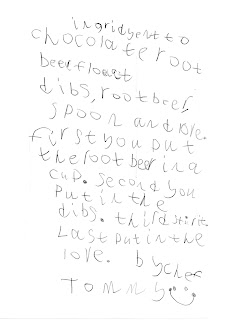 ingridyent to
chocolate root
beerfloat
dibs, rootbeer,
spoon and love.
first you put
the root beer in a
cup. second you
put in the
dibs. third stirit.
Last put in the
love. by chef
Tommy